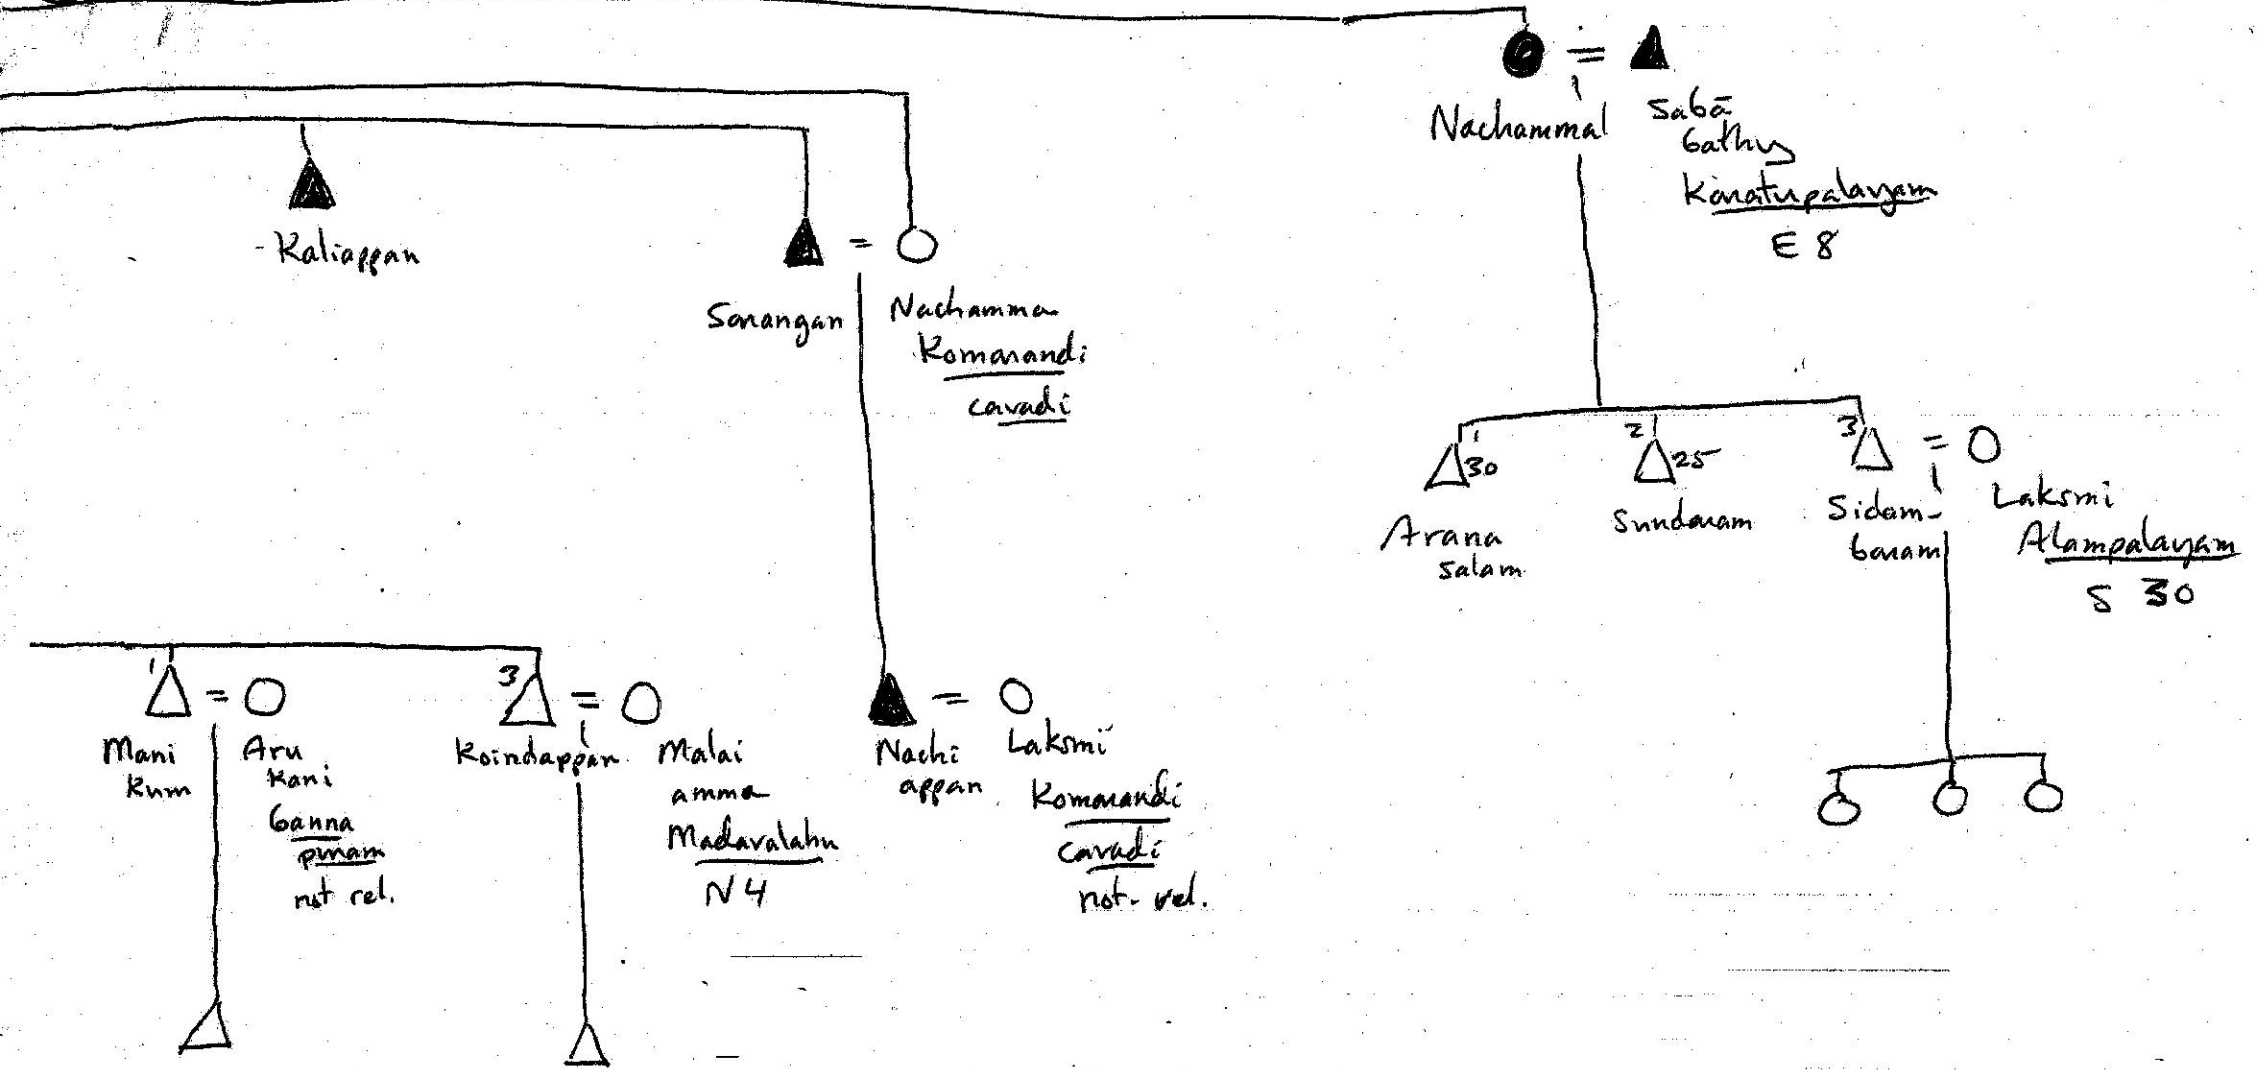 Nachammal
Sabā
bathy
Konatupalayam
E 8
Kaliappan
Sonangan
Nachamma
Komarandi
cavadi
1
30
Arana
salam
2
25
Sundaram
3
Sidam-
baram
Laksmi
Alampalayam
S 30
1
Mani
kum
Aru
kani
Ganna
puram
not rel.
3
Koindappan
Malai
amma
Madavalahu
N 4
Nachi
appan
Laksmi
Komarandi
cavadi
not rel.